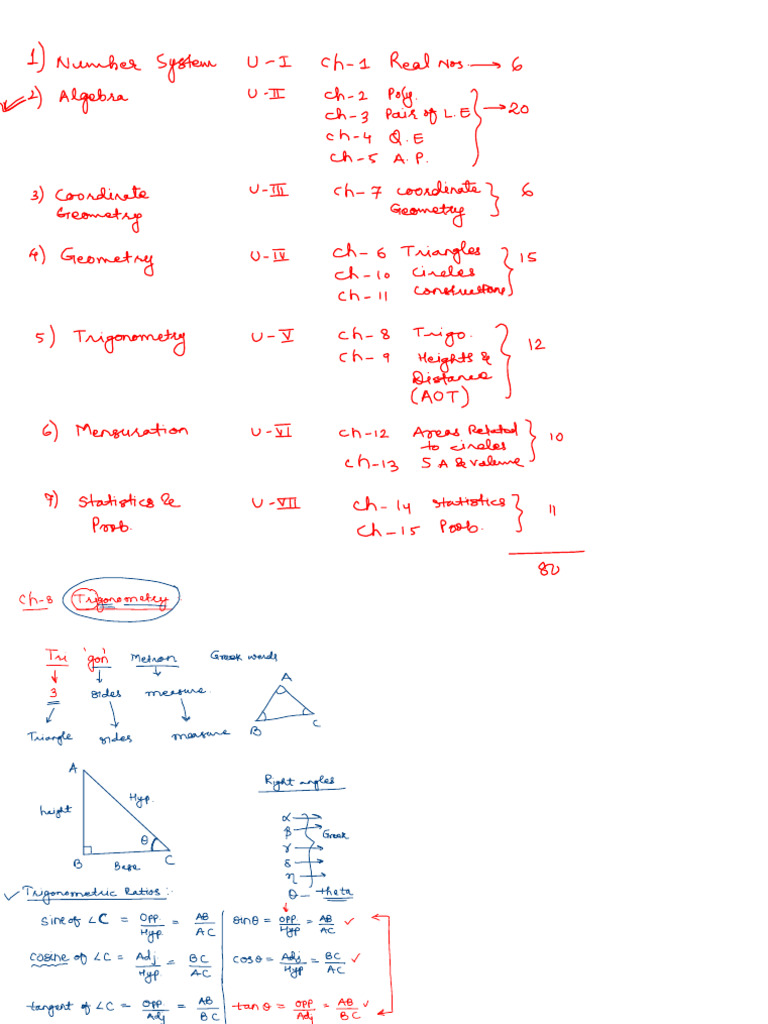 1) Number System U-I Ch-1 Real Nos. → 6
2) Algebra U-II Ch-2 Poly. → 20
Ch-3 Pair of L.E
Ch-4 Q.E
Ch-5 A.P.
3) Coordinate Geometry U-III Ch-7 Coordinate Geometry 6
4) Geometry U-IV Ch-6 Triangles 15
Ch-10 Circles
Ch-11 Constructions
5) Trigonometry U-V Ch-8 Trigo. 12
Ch-9 Heights & Distance (AOT)
6) Mensuration U-VI Ch-12 Areas Related to circles 10
Ch-13 S A & Volume
7) Statistics & Prob. U-VII Ch-14 Statistics 11
Ch-15 Prob.
80
Ch-8 Trigonometry
Tri 'gon' Metron Greek words
3 sides measure.
Triangle sides measure
A
B
C
A
height
Hyp.
θ
B
Base
C
Right angles
α
β Greek
γ
δ
η
θ - theta
✓ Trigonometric Ratios:-
sine of ∠C = Opp./Hyp = AB/AC sinθ = Opp/Hyp = AB/AC ✓
cosine of ∠C = Adj/Hyp = BC/AC cosθ = Adj/Hyp = BC/AC ✓
tangent of ∠C = Opp/Adj = AB/BC tanθ = Opp/Adj = AB/BC ✓